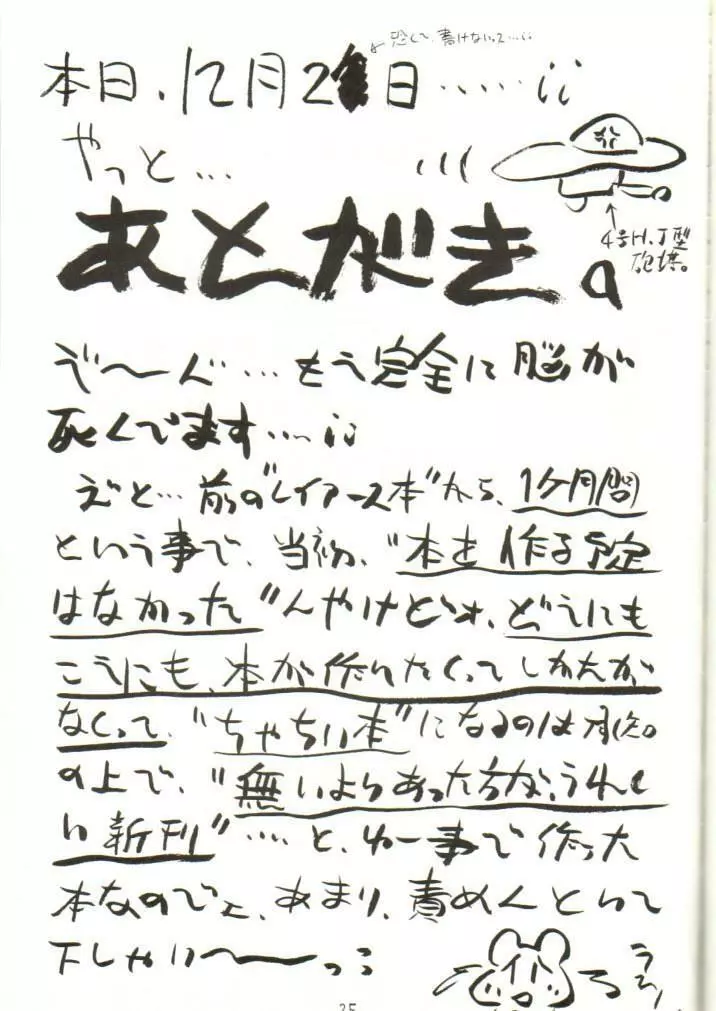 恐くて、書けないって…;;
本日、12月2日……;;
やっと…
あとがき。
4号H、J型
砲塔。
ぞ〜ん…もう完全に脳が
死んでます…;;
えと…前の"レイアース本"から、1ケ月間
という事で、当初、"本を作る予定
はなかった"んやけどォ、どうにも
こうにも、本が作りたくってしかたが
なくって、"ちゃちい本"になるのは承知。
の上で、"無いよりあった方が、うれし
い新刊"…と、ゆー事で作った
本なのでェ、あまり、責めんといて
下しゃい〜っ;;
うろ
25